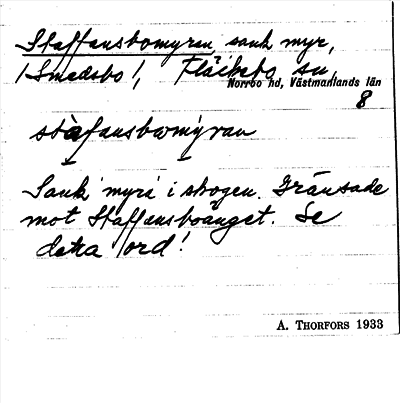 Staffansbomyran, sank myr,
(Smedsbo), Fläckebo sn,
Norrbo hd, Västmanlands län
8
stàfansbomýran
Sank myra i skogen. Gränsade
mot Staffansboänget. Se
detta ord!
A. THORFORS 1933